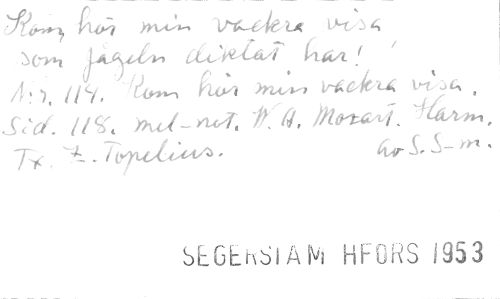 Kom, hör min vackra visa
som fågeln diktat har!
Nr. 114. Kom hör min vackra visa.
Sid. 118. mel-not. W. A. Mozart. Harm.
Tx. Z. Topelius. av S. S-m.
SEGERSTAM HFORS 1953